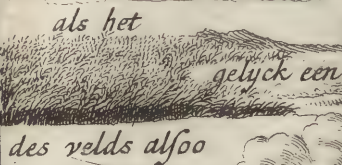 als het
gelyck een
des velds alſoo